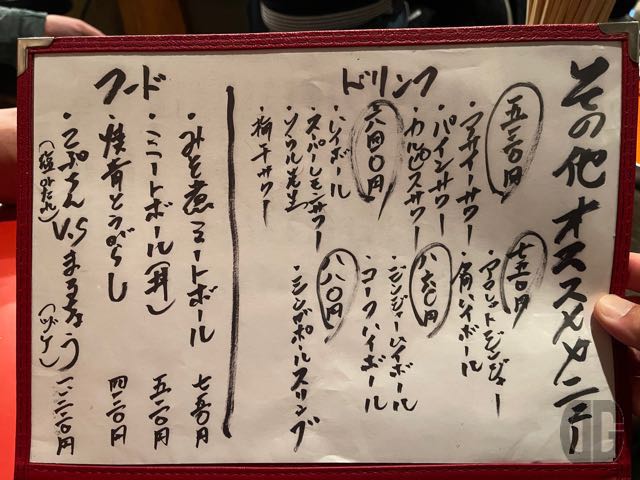 その他オススメメニュー
ドリンク
五二〇円
・アサイーサワー
・パインサワー
・カルピスサワー
六四〇円
・ハイボール
・スーパーレモンサワー
・ソウル先生
・梅干サワー
七五〇円
・角ハイボール
八六〇円
・ジンジャーハイボール
・コークハイボール
八八〇円
・シンガポールスリング
フード
・みそ煮ミートボール 七五〇円
・ミートボール(丼) 五二〇円
・焼青とうがらし 四二〇円
・こぷちゃんV.Sまるちょう
(塩みだれ)
(ヅケ)